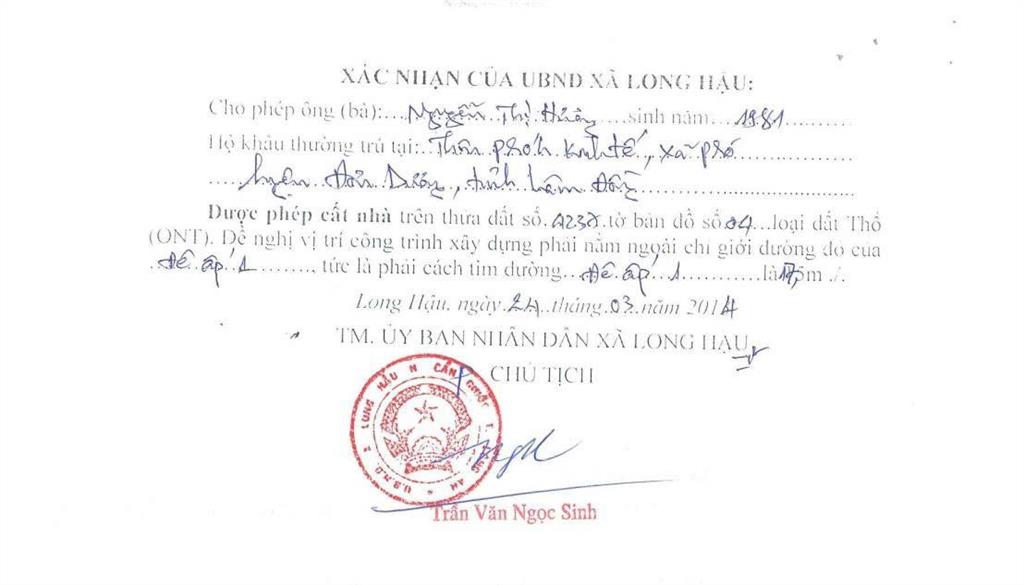 XÁC NHẬN CỦA UBND XÃ LONG HẬU:
Cho phép ông (bà):....Nguyễn Thị Hương....sinh năm...1981..........
Hộ khẩu thường trú tại:..Thôn kinh tế, xã
....huyện Đơn Dương, tỉnh Lâm Đồng..............................
Được phép cất nhà trên thửa đất số..tờ bản đồ số 04...loại đất Thổ
(ONT). Đề nghị vị trí công trình xây dựng phải nằm ngoài chỉ giới đường đo của
..Đê ấp 1........., tức là phải cách tim đường...Đê ấp 1...........là m ./.
Long Hậu, ngày.24..tháng.03.năm 2014
TM. ỦY BAN NHÂN DÂN XÃ LONG HẬU
CHỦ TỊCH
U.B.N.D X LONG HẬU H CẦN GIUỘC T. LONG AN
Trần Văn Ngọc Sinh